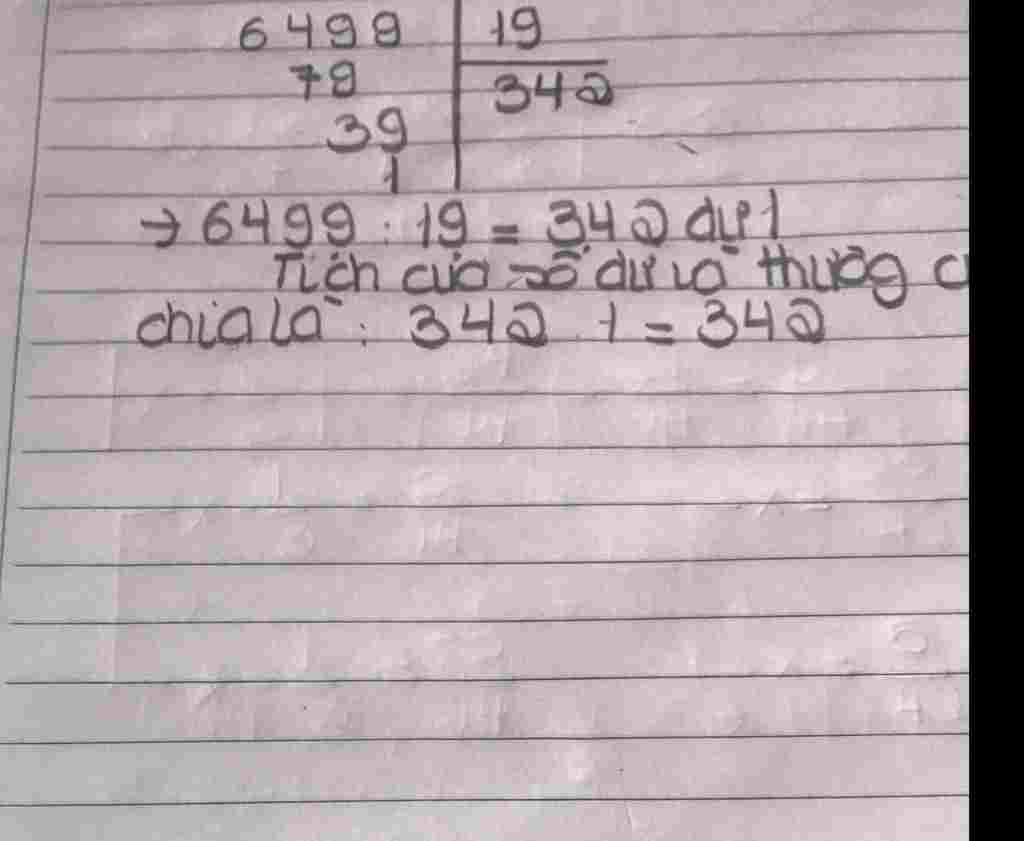 6499 19
79 342
39
1
→ 6499 : 19 = 342 dư 1
Tích của số dư và thương c
chia là : 342 . 1 = 342